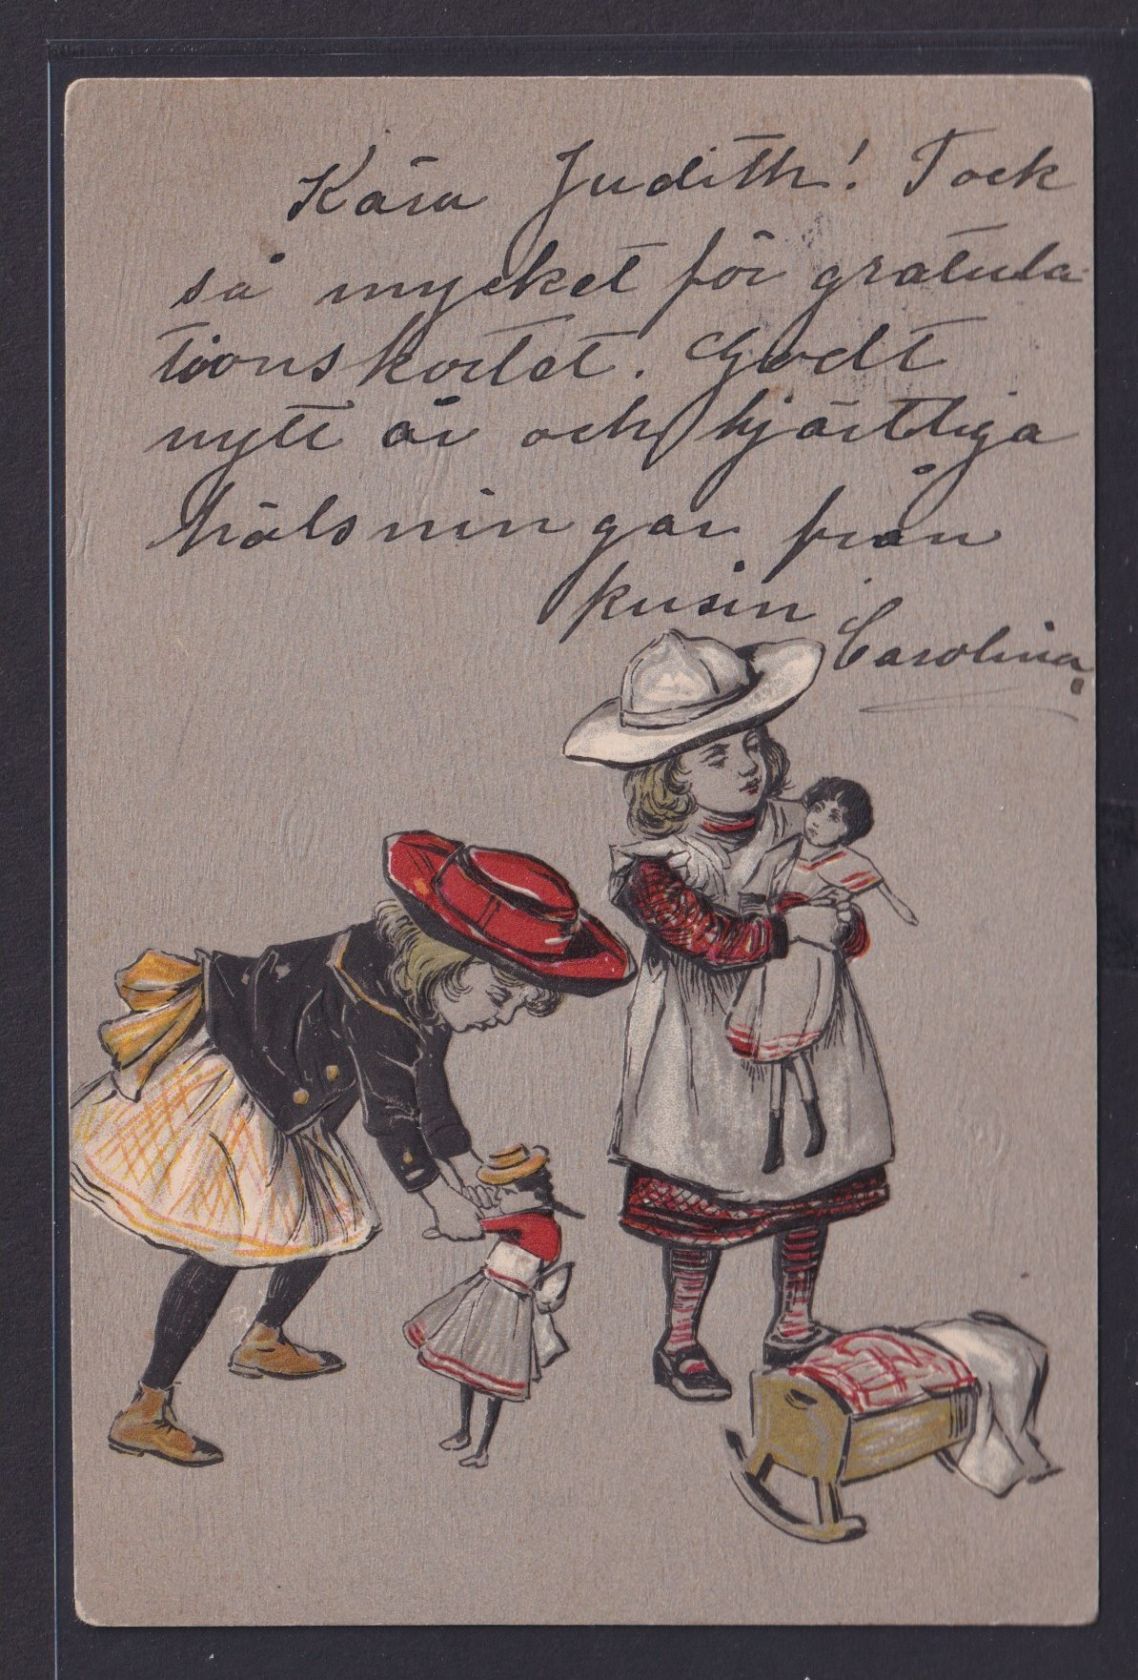 Kära Judith! Tack
så mycket för gratula-
tionskortet. Godt
nytt år och hjärtliga
hälsningar från
kusin Carolina.